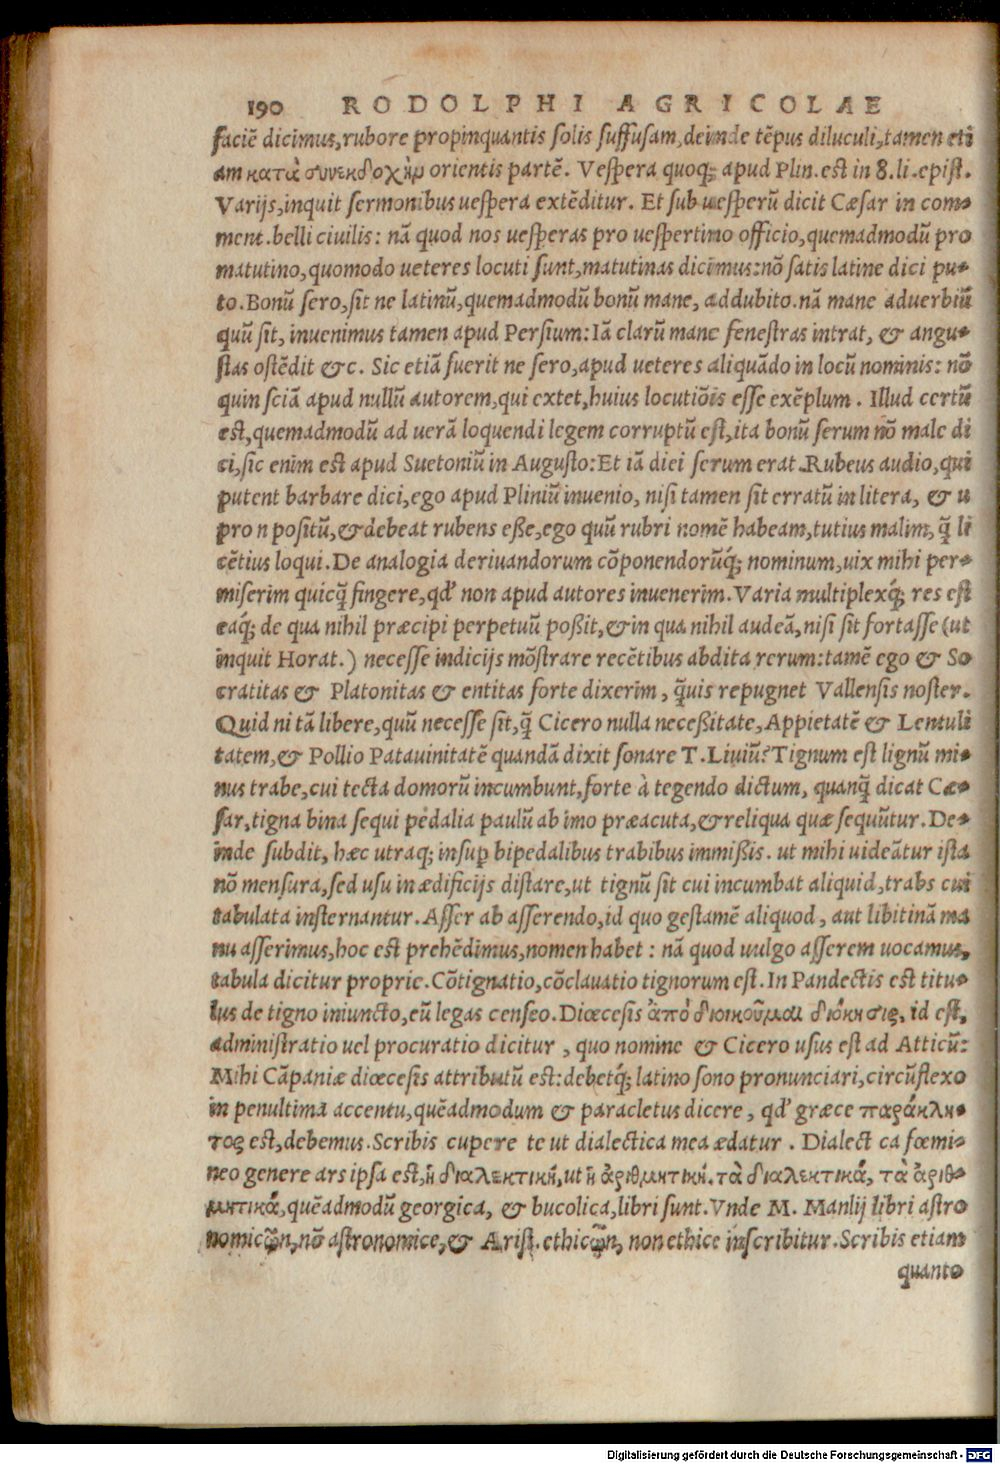 190 RODOLPHI AGRICOLAE
faciē dicimus, rubore propinquantis solis suffusam, deinde tēpus diluculi, tamen eti
am κατὰ συνεκδοχὴν orientis partē. Vespera quoq; apud Plin. est in 8. li. epist.
Varijs, inquit sermonibus uespera extēditur. Et sub uesperū dicit Cæsar in com-
ment. belli ciuilis: nā quod nos uesperas pro uespertino officio, quemadmodū pro
matutino, quomodo ueteres locuti sunt, matutinas dicimus: nō satis latine dici pu-
to. Bonū sero, sit ne latinū, quemadmodū bonū mane, addubito. nā mane aduerbiū
quū sit, inuenimus tamen apud Persium: Iā clarū mane fenestras intrat, & angu-
stas ostēdit &c. Sic etiā fuerit ne sero, apud ueteres aliquādo in locū nominis: nō
quin sciā apud nullū autorem, qui extet, huius locutiōis esse exēplum. Illud certū
est, quemadmodū ad uerā loquendi legem corruptū est, ita bonū serum nō male di
ci, sic enim est apud Suetoniū in Augusto: Et iā diei serum erat. Rubeus audio, qui
putent barbare dici, ego apud Pliniū inuenio, nisi tamen sit erratū in litera, & u
pro n positū, & debeat rubens eße, ego quū rubri nomē habeam, tutius malim, q̄ li
cētius loqui. De analogia deriuandorum cōponendorūq́; nominum, uix mihi per-
miserim quicq̄ fingere, qđ non apud autores inuenerim. Varia multiplexq́; res est
eaq́; de qua nihil præcipi perpetuū poßit, & in qua nihil audeā, nisi sit fortasse (ut
inquit Horat.) necesse indicijs mōstrare recētibus abdita rerum: tamē ego & So
cratitas & Platonitas & entitas forte dixerim, q̄uis repugnet Vallensis noster.
Quid ni tā libere, quū necesse sit, q̄ Cicero nulla necessitate, Appietatē & Lentuli
tatem, & Pollio Patauinitatē quandā dixit sonare T. Liuiū? Tignum est lignū mi-
nus trabe, cui tecta domorū incumbunt, forte à tegendo dictum, quanq̄ dicat Cæ-
sar, tigna bina sequi pedalia paulū ab imo præacuta, & reliqua quæ sequūtur. De-
inde subdit, hæc utraq; insup bipedalibus trabibus immißis. ut mihi uideātur ista
nō mensura, sed usu in ædificijs distare, ut tignū sit cui incumbat aliquid, trabs cui
tabulata insternantur. Asser ab asserendo, id quo gestamē aliquod, aut libitinā ma
nu asserimus, hoc est prehēdimus, nomen habet: nā quod uulgo asserem uocamus,
tabula dicitur proprie. Cōtignatio, cōclauatio tignorum est. In Pandectis est titu-
lus de tigno iniuncto, eū legas censeo. Diœcesis ἀπὸ διοικοῦμαι διόκησις, id est,
administratio uel procuratio dicitur, quo nomine & Cicero usus est ad Atticū:
Mihi Cāpaniæ diœcesis attributū est: debetq́; latino sono pronunciari, circūflexo
in penultima accentu, quēadmodum & paracletus dicere, qđ græce παράκλη-
τος est, debemus. Scribis cupere te ut dialectica mea ædatur. Dialect ca fœmi-
neo genere ars ipsa est, ἡ διαλεκτικὴ, ut ἡ ἀριθμητικὴ. τὰ διαλεκτικά, τὰ ἀριθ-
μητικά, quēadmodū georgica, & bucolica, libri sunt. Vnde M. Manlij libri astro
nomicῶν, nō astronomice, & Arist. ethicῶν, non ethice inscribitur. Scribis etiam
quanto
Digitalisierung gefördert durch die Deutsche Forschungsgemeinschaft - DFG